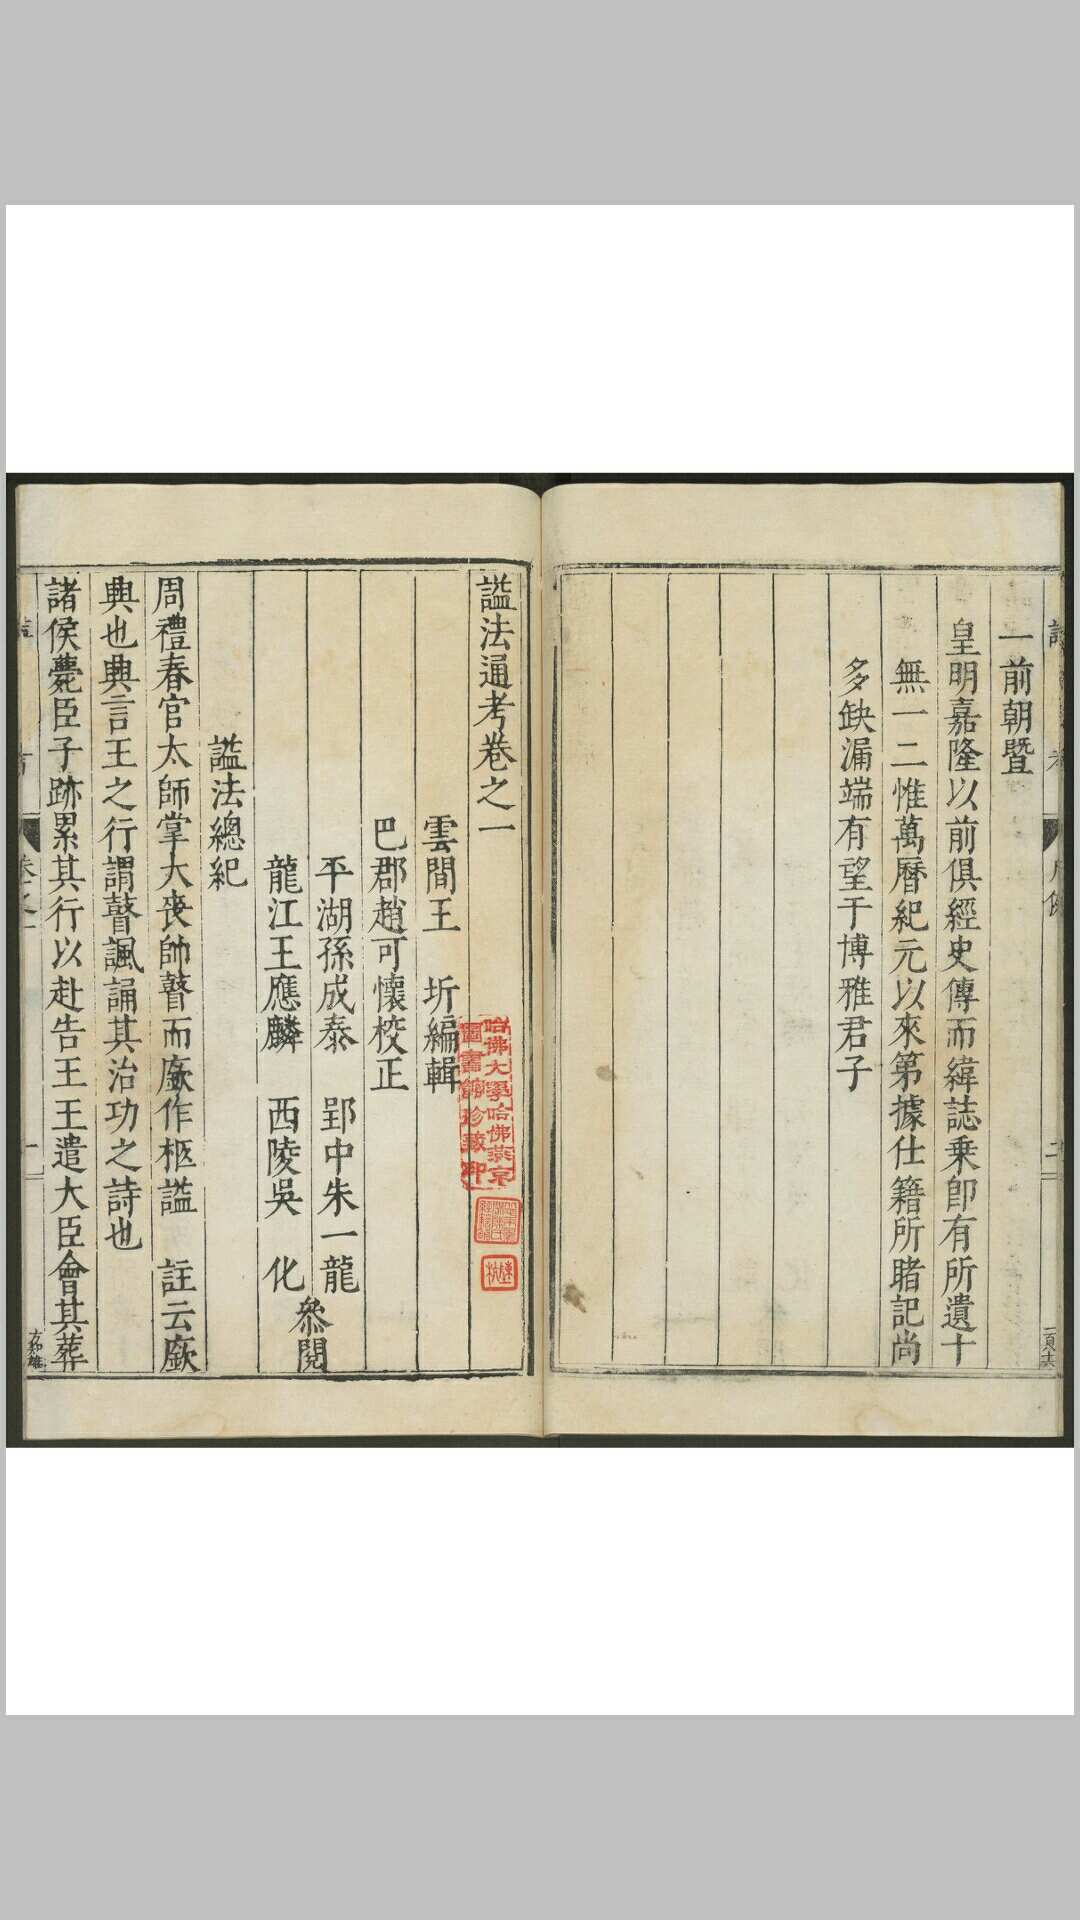 一前朝暨
皇明嘉隆以前俱經史傳而緯誌乗卽有所遺十
無一二惟萬曆紀元以來第據仕籍所睹記尚
多缺漏端有望于博雅君子
謚法通考卷之一
雲間王　圻編輯
巴郡趙可懷校正
平湖孫成泰　郢中朱一龍
龍江王應麟　西陵吳　化
叅閱
謚法總紀
周禮春官太師掌大喪帥瞽而廞作柩謚　註云廞
興也興言王之行謂瞽諷誦其治功之詩也
諸侯薨臣子跡累其行以赴告王王遣大臣會其葬
哈佛大學哈佛燕京
圖書館珍藏印